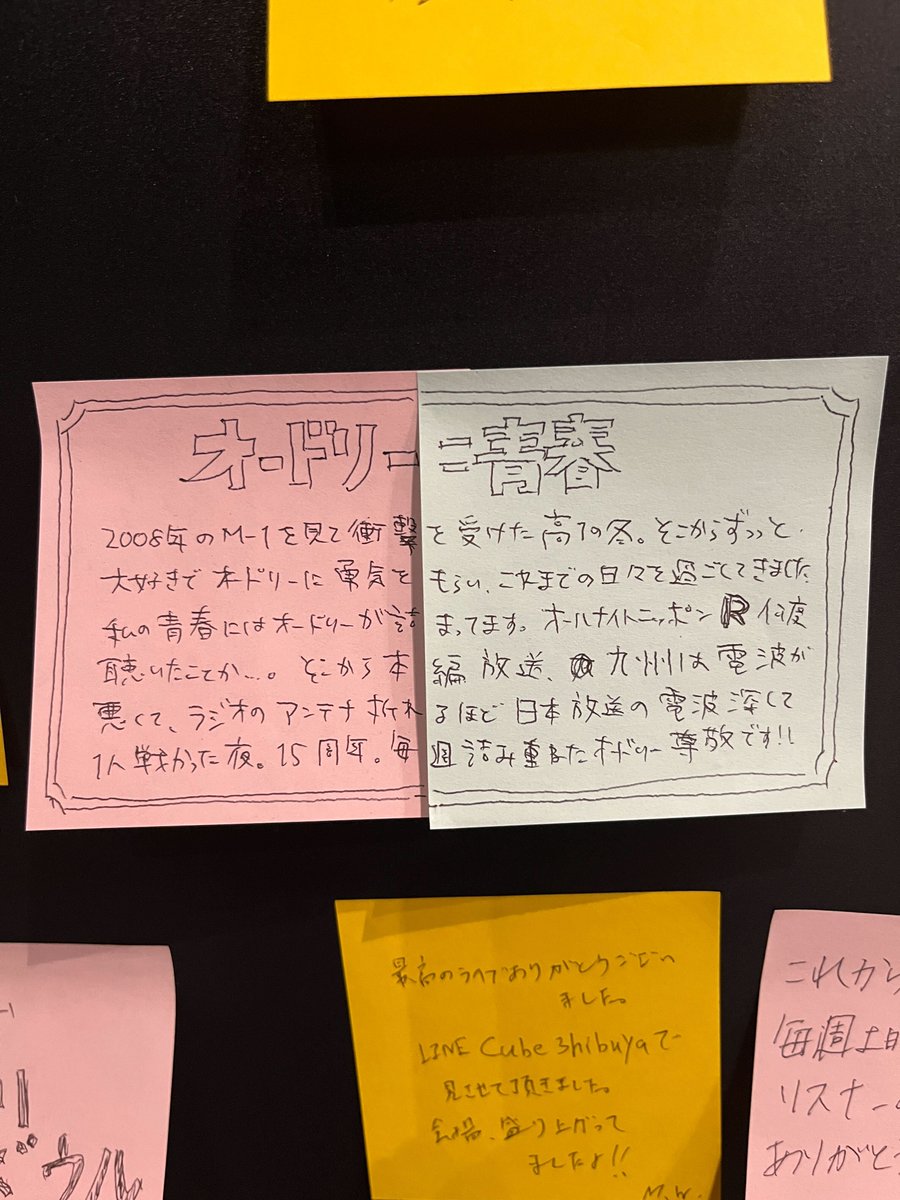 オードリー=青春
2008年のM-1を見て衝撃を受けた高1の冬。そこからずっと
大好きでオドリーに勇気をもらい、これまでの日々を過ごしてきました
私の青春にはオードリーが詰まってます。オールナイトニッポンR何度
聴いたことか…。そこから本編放送、九州は電波が
悪くて、ラジオのアンテナ折れるほど日本放送の電波深して
1人戦かった夜。15周年。毎週詰み重ねたオドリー尊敬です!!
最高のライブありがとうござい
ました。
LINE Cube Shibuyaで
見させて頂きました。
会場、盛り上がって
ましたよ!!
M.W.
これから
毎週土日
リスナー
ありがとう